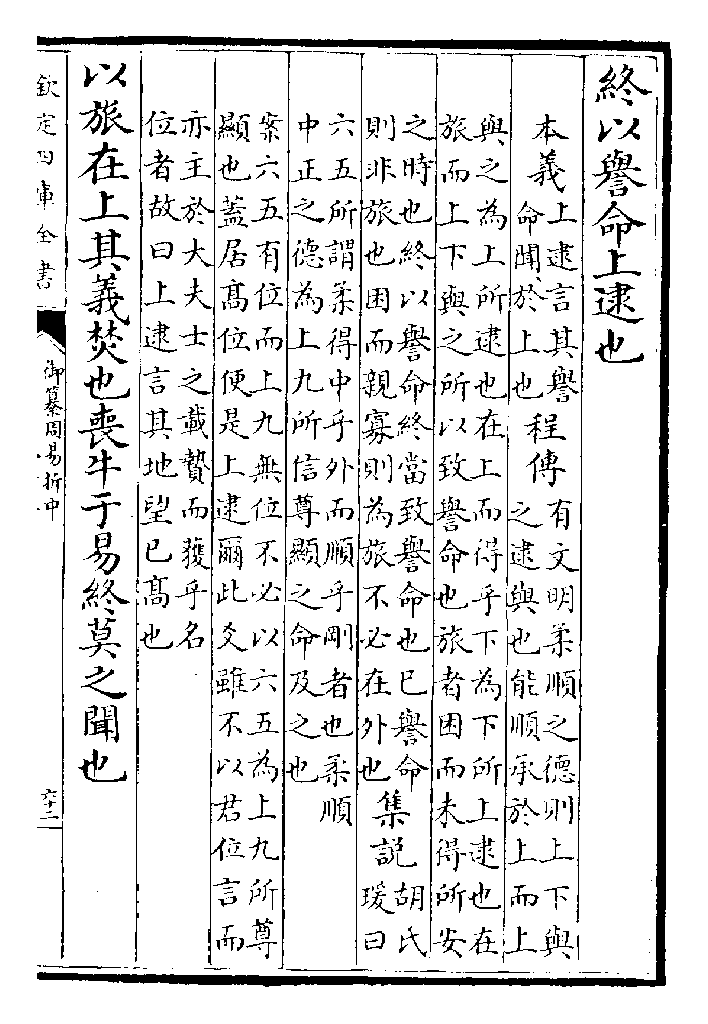 終以譽命上逮也
本義
上逮言其譽
命聞於上也
程傳
有文明柔順之德則上下與
之逮與也能順承於上而上
與之為上所逮也在上而得乎下為下所上逮也在
旅而上下與之所以致譽命也旅者困而未得所安
之時也終以譽命終當致譽命也已譽命
則非旅也困而親寡則為旅不必在外也
集説
胡氏
瑗曰
六五所謂柔得中乎外而順乎剛者也柔順
中正之德為上九所信尊顯之命及之也
案六五有位而上九無位不必以六五為上九所尊
顯也蓋居髙位便是上逮爾此爻雖不以君位言而
亦主於大夫士之載贄而獲乎名
位者故曰上逮言其地望已髙也
以旅在上其義焚也喪牛于易終莫之聞也
欽定四庫全書
御纂周易折中
六十二